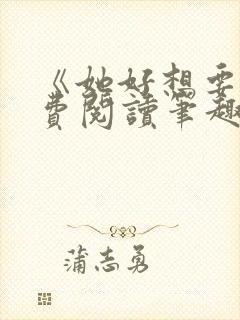 《她好想要
費閱讀筆趣
蒲志勇